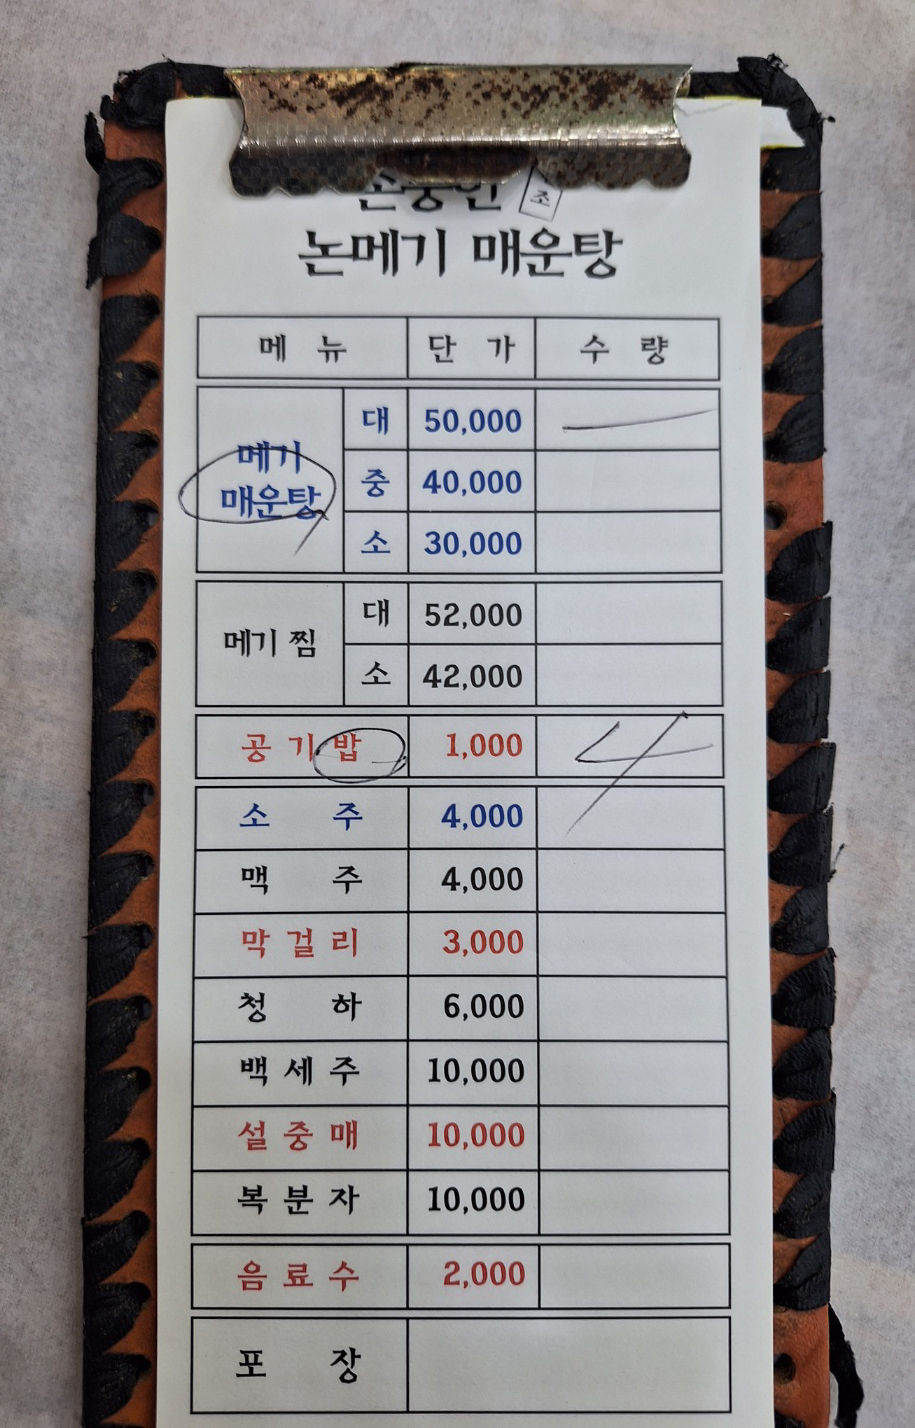 조
논메기 매운탕
메 뉴 단 가 수 량
메기 매운탕 대 50,000 一
중 40,000
소 30,000
메기 찜 대 52,000
소 42,000
공 기 밥 1,000 4
소 주 4,000
맥 주 4,000
막 걸 리 3,000
청 하 6,000
백 세 주 10,000
설 중 매 10,000
복 분 자 10,000
음 료 수 2,000
포 장